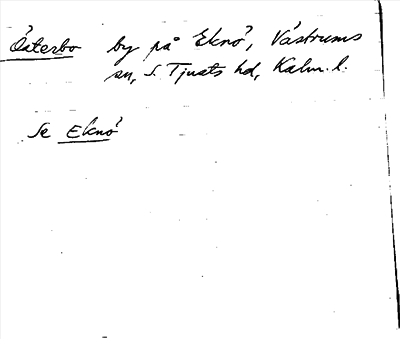 Österbo by på Eknö, Västrums
sn, S. Tjusts hd, Kalm. l.
Se Eknö